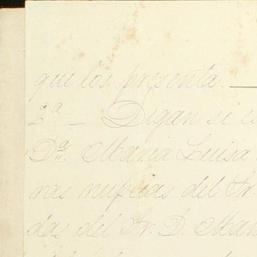 que los presenta.
2ª _ Digan si
Dª. Maria Luisa
ras nupcias del Sr.
das del Sr. D. Man